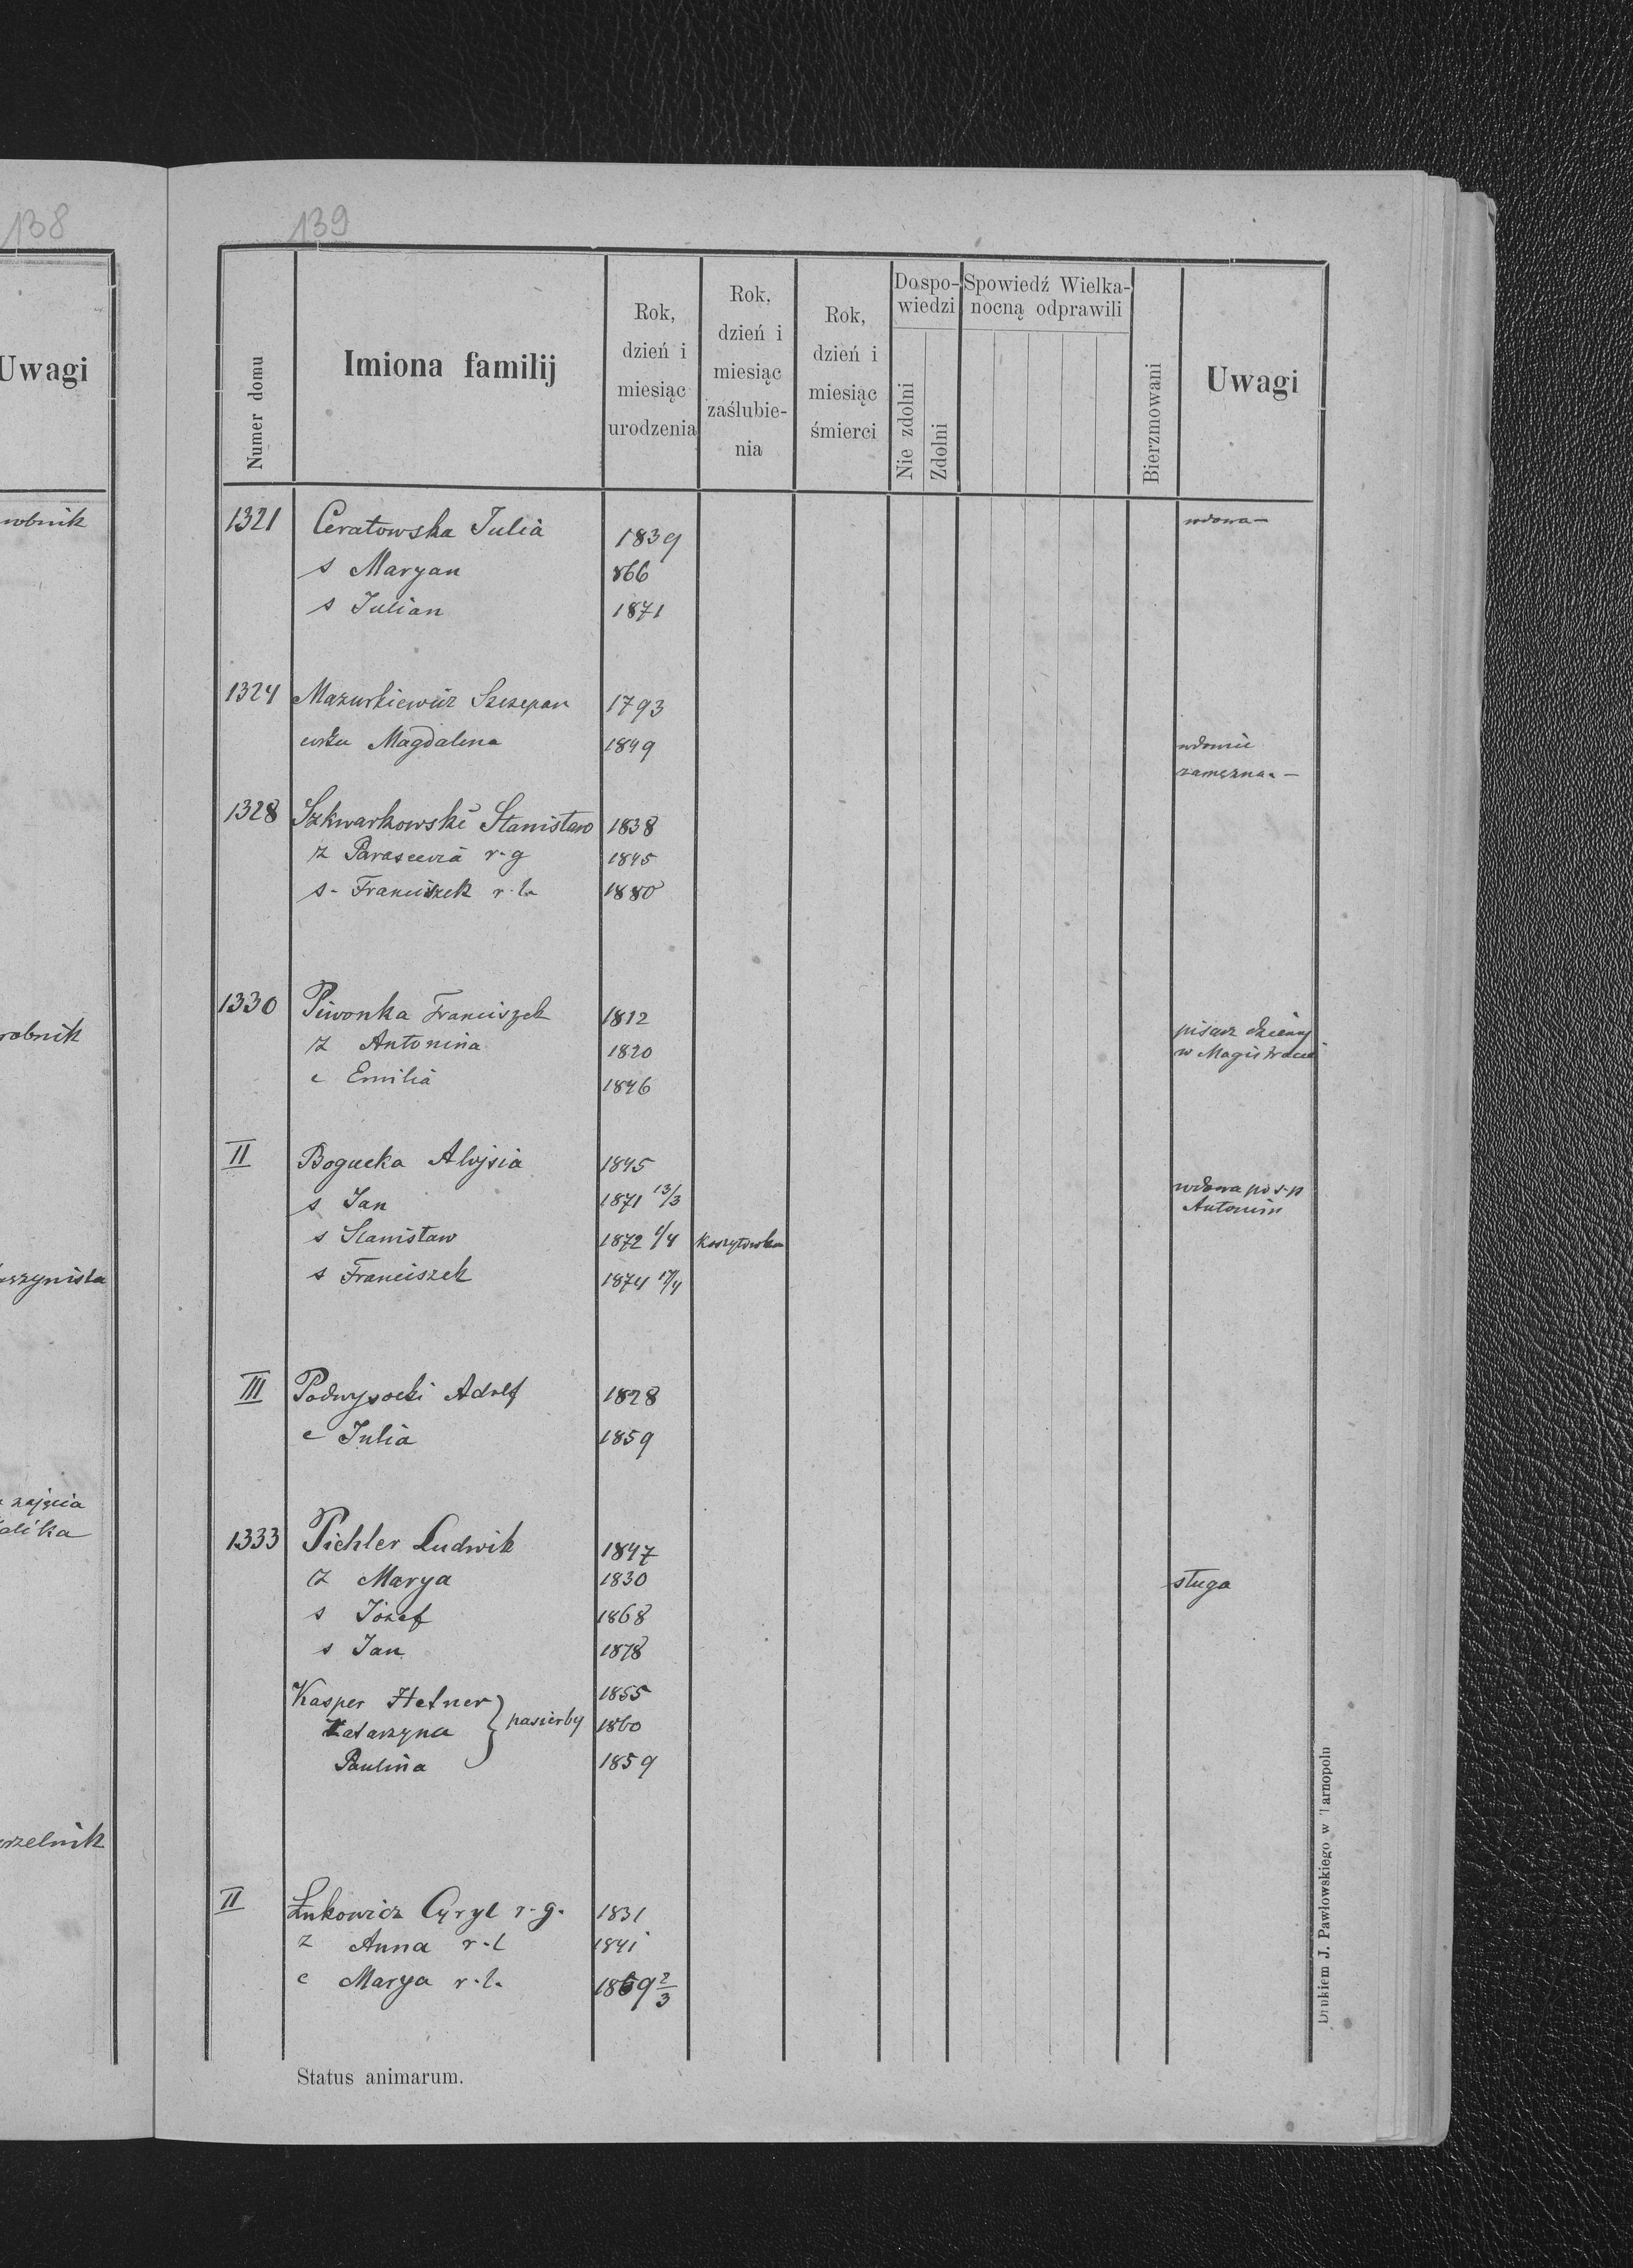 138
Uwagi
robnik
zajęcia
139
Numer domu
Imiona familij
Rok, dzień i miesiąc urodzenia
Rok, dzień i miesiąc zaślubienia
Rok, dzień i miesiąc śmierci
Do spowiedzi
Nie zdolni
Zdolni
Spowiedź Wielkanocną odprawili
Bierzmowani
Uwagi
1321 Ceratowska Julia 1839 wdowa
s Maryan 866
s Julian 1871
1324 Mazurkiewicz Szczepan 1793
Magdalena 1849 wdowiec
zamężna
1328 Szkwarkowski Stanisław 1838
ż Parascevia r-g 1845
s- Franciszek r-l 1880
1330 Piwonka Franciszek 1812 pisarz dzienny
ż Antonina 1820 w Magistracie
c Emilia 1846
II Bogucka Aloysia 1845 wdowa po ś-p
s Jan 1871 13/3 Antonim
s Stanisław 1872
s Franciszek 1874
III Podwysocki Adolf 1828
c Julia 1859
1333 Pichler Ludwik 1847
ż Marya 1830 sługa
s Józef 1868
s Jan 1878
Kasper Hetner 1855
Katarzyna } pasierby 1860
Paulina 1859
II Łukowicz Cyryl r-g. 1831
ż Anna r-l 1841
c Marya r-l. 1869 2/3
Status animarum.
Drukiem J. Pawłowskiego w Tarnopolu